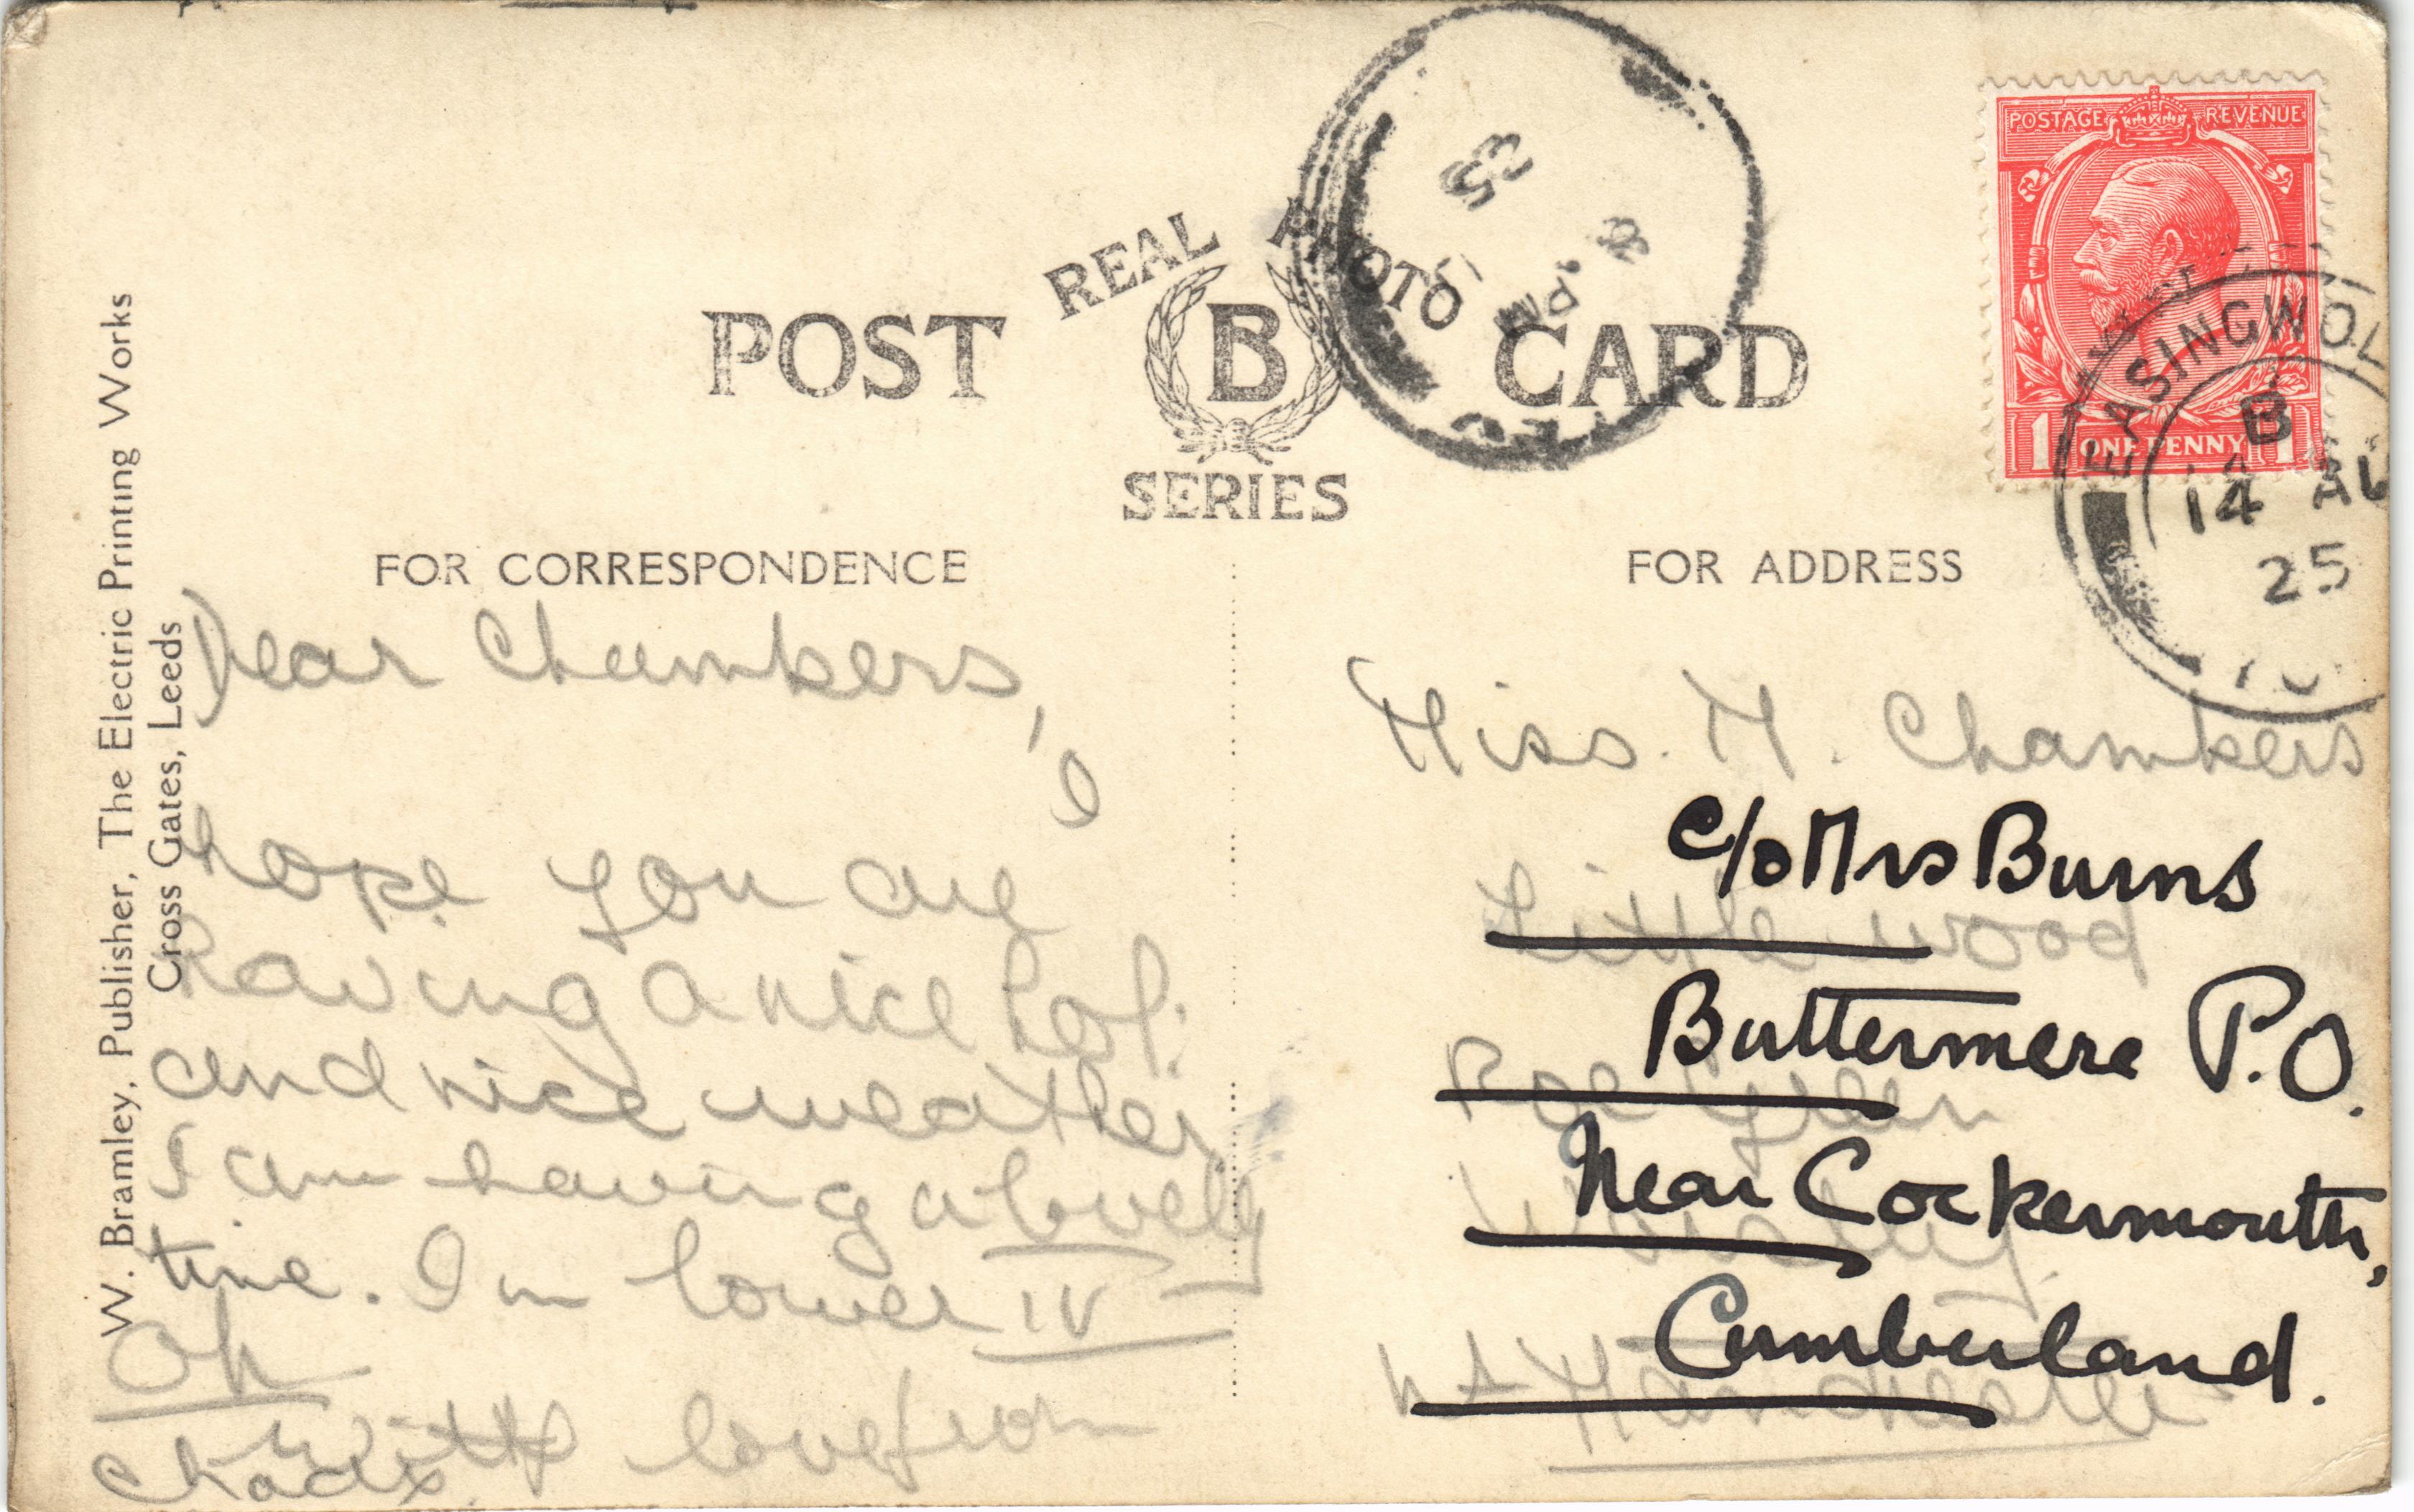 POSTAGE REVENUE
1 ONE PENNY 1
EASINGWOL
B
14 AU
25
REAL PHOTO
POST B CARD
SERIES
PM
25
FOR CORRESPONDENCE
FOR ADDRESS
W. Bramley, Publisher, The Electric Printing Works
Cross Gates, Leeds
Dear Chambers,
I
hope you are
having a nice hol:
and nice weather
I am having a lovely
time. I'm lower IV
Oh
with love from
Chads
Miss. M. Chambers
c/o Mrs Burns
Little wood
Buttermere P.O.
Roe Green
Near Cockermouth,
Worsley.
Cumberland.
Nr Manchester